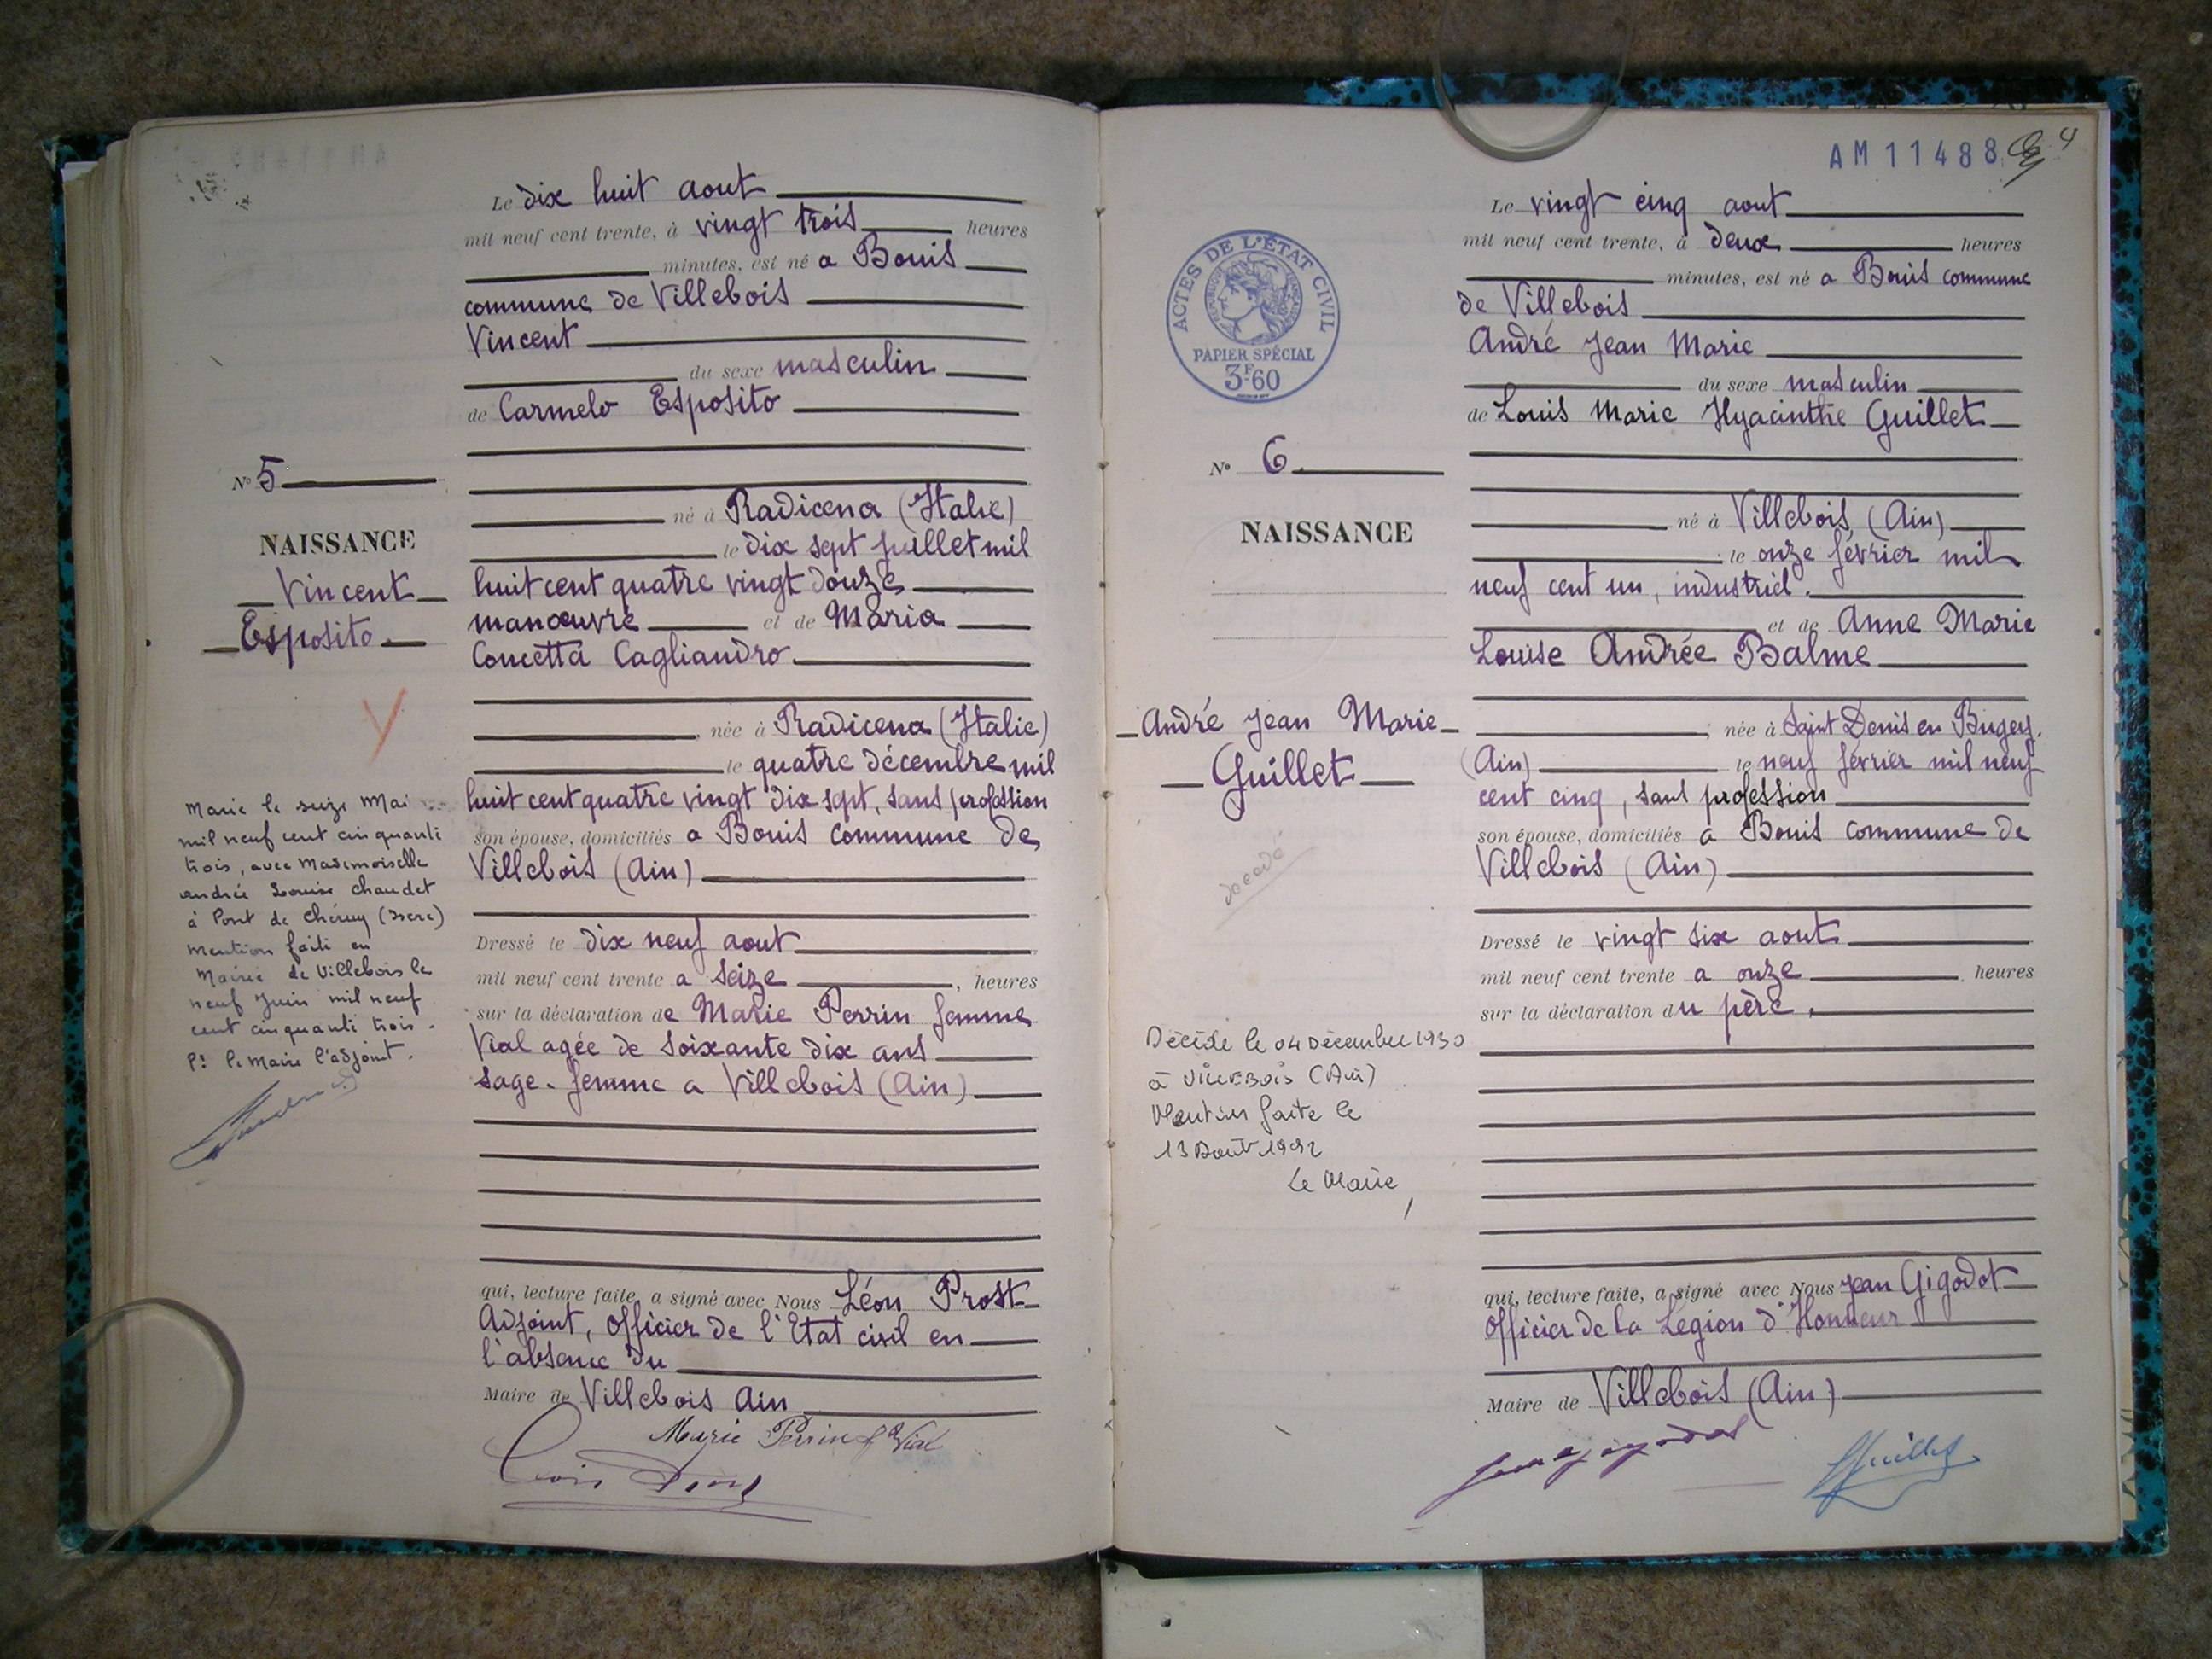 Le dix huit aout
mil neuf cent trente, à vingt trois heures
minutes, est né a Bouis
commune de Villebois
Vincent
du sexe masculin
de Carmelo Esposito
né à Radicena (Italie)
le dix sept juillet mil
huit cent quatre vingt douze
manœuvre et de Maria
Concetta Cagliandro
née à Radicena (Italie)
le quatre décembre mil
huit cent quatre vingt dix sept, sans profession
son épouse, domiciliés a Bouis commune de
Villebois (Ain)
Dressé le dix neuf aout
mil neuf cent trente a seize, heures
sur la déclaration de Marie Perrin femme
Vial agée de soixante dix ans
sage-femme a Villebois (Ain)
qui, lecture faite, a signé avec Nous Léon Prost
Adjoint, officier de l'Etat civil en
l'absence du
Maire de Villebois Ain
Marie Perrin f Vial
N° 5
NAISSANCE
Vincent
Esposito
Marié le seize Mai
mil neuf cent cinquante
trois, avec Mademoiselle
andrée Louise Chaudet
à Pont de Chéruy (Isère)
mention faite en
Mairie de Villebois le
neuf Juin mil neuf
cent cinquante trois.
Pr le Maire l'adjoint.
AM11488
4
ACTES DE L'ÉTAT CIVIL
PAPIER SPÉCIAL
3F60
Le vingt cinq aout
mil neuf cent trente, à deux heures
minutes, est né a Bouis commune
de Villebois
André Jean Marie
du sexe masculin
de Louis Marie Hyacinthe Guillet
né à Villebois (Ain)
le onze février mil
neuf cent un, industriel.
et de Anne Marie
Louise Andrée Balme
née à Saint Denis en Bugey.
(Ain) le neuf février mil neuf
cent cinq, sans profession
son épouse, domiciliés a Bouis commune de
Villebois (Ain)
Dressé le vingt six aout
mil neuf cent trente a onze heures
sur la déclaration du père.
qui, lecture faite, a signé avec Nous Jean Gigodot
officier de la Légion d'Honneur
Maire de Villebois (Ain)
Guillet
N° 6
NAISSANCE
André Jean Marie
Guillet
décédé
Décédé le 04 Décembre 1930
à VILLEBOIS (Ain)
Mention faite le
13 Août
Le Maire,